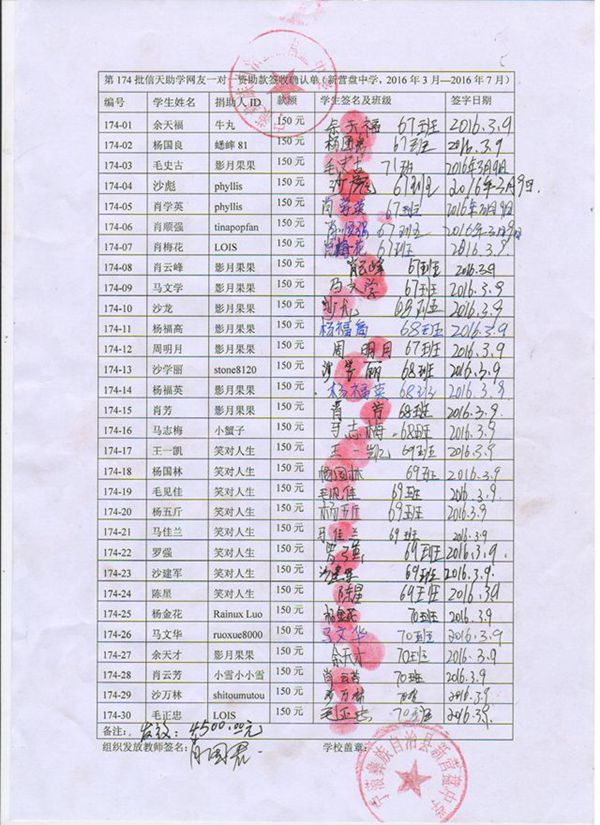 第174批信天助学网友一对一资助款签收确认单(新营盘中学，2016年3月—2016年7月)
编号 学生姓名 捐助人ID 款额 学生签名及班级 签字日期
174-01 余天福 牛丸 150元 余天福 67班 2016.3.9
174-02 杨国良 蟋蟀81 150元 杨国良 67班 2016.3.9
174-03 毛史古 影月果果 150元 毛史古 71班 2016年3月9日
174-04 沙彪 phyllis 150元 沙彪 67班 2016年3月9日.
174-05 肖学英 phyllis 150元 肖学英 67班 2016年3月9日
174-06 肖顺强 tinapopfan 150元 肖顺强 67班 2016年3月9日
174-07 肖梅花 LOIS 150元 肖梅花 67班 2016.3.9
174-08 肖云峰 影月果果 150元 肖云峰 67班 2016.3.9
174-09 马文学 影月果果 150元 马文学 67班 2016.3.9
174-10 沙龙 影月果果 150元 沙龙 68班 2016.3.9
174-11 杨福高 影月果果 150元 杨福高 68班 2016.3.9
174-12 周明月 影月果果 150元 周明月 67班 2016.3.9
174-13 沙学丽 stone8120 150元 沙学丽 68班 2016.3.9
174-14 杨福英 影月果果 150元 杨福英 68班 2016.3.9
174-15 肖芳 影月果果 150元 肖芳 68班 2016.3.9
174-16 马志梅 小蟹子 150元 马志梅 68班 2016.3.9
174-17 王一凯 笑对人生 150元 王一凯 69班 2016.3.9
174-18 杨国林 笑对人生 150元 杨国林 69班 2016.3.9
174-19 毛见佳 笑对人生 150元 毛见佳 69班 2016.3.9
174-20 杨五斤 笑对人生 150元 杨五斤 69班 2016.3.9
174-21 马佳兰 笑对人生 150元 马佳兰 69班 2016.3.9
174-22 罗强 笑对人生 150元 罗强 69班 2016.3.9
174-23 沙建军 笑对人生 150元 沙建军 69班 2016.3.9
174-24 陈星 笑对人生 150元 陈星 69班 2016.3.9
174-25 杨金花 Rainux Luo 150元 杨金花 70班 2016.3.9
174-26 马文华 ruoxue8000 150元 马文华 70班 2016.3.9
174-27 余天才 影月果果 150元 余天才 70班 2016.3.9
174-28 肖云芳 小雪小小雪 150元 肖云芳 70班 2016.3.9
174-29 沙万林 shitoumutou 150元 沙万林 70班 2016.3.9
174-30 毛正忠 LOIS 150元 毛正忠 70班 2016.3.9
备注: 发放: 4500.00元
组织发放教师签名: 学校盖章:
宁蒗彝族自治县新营盘中学